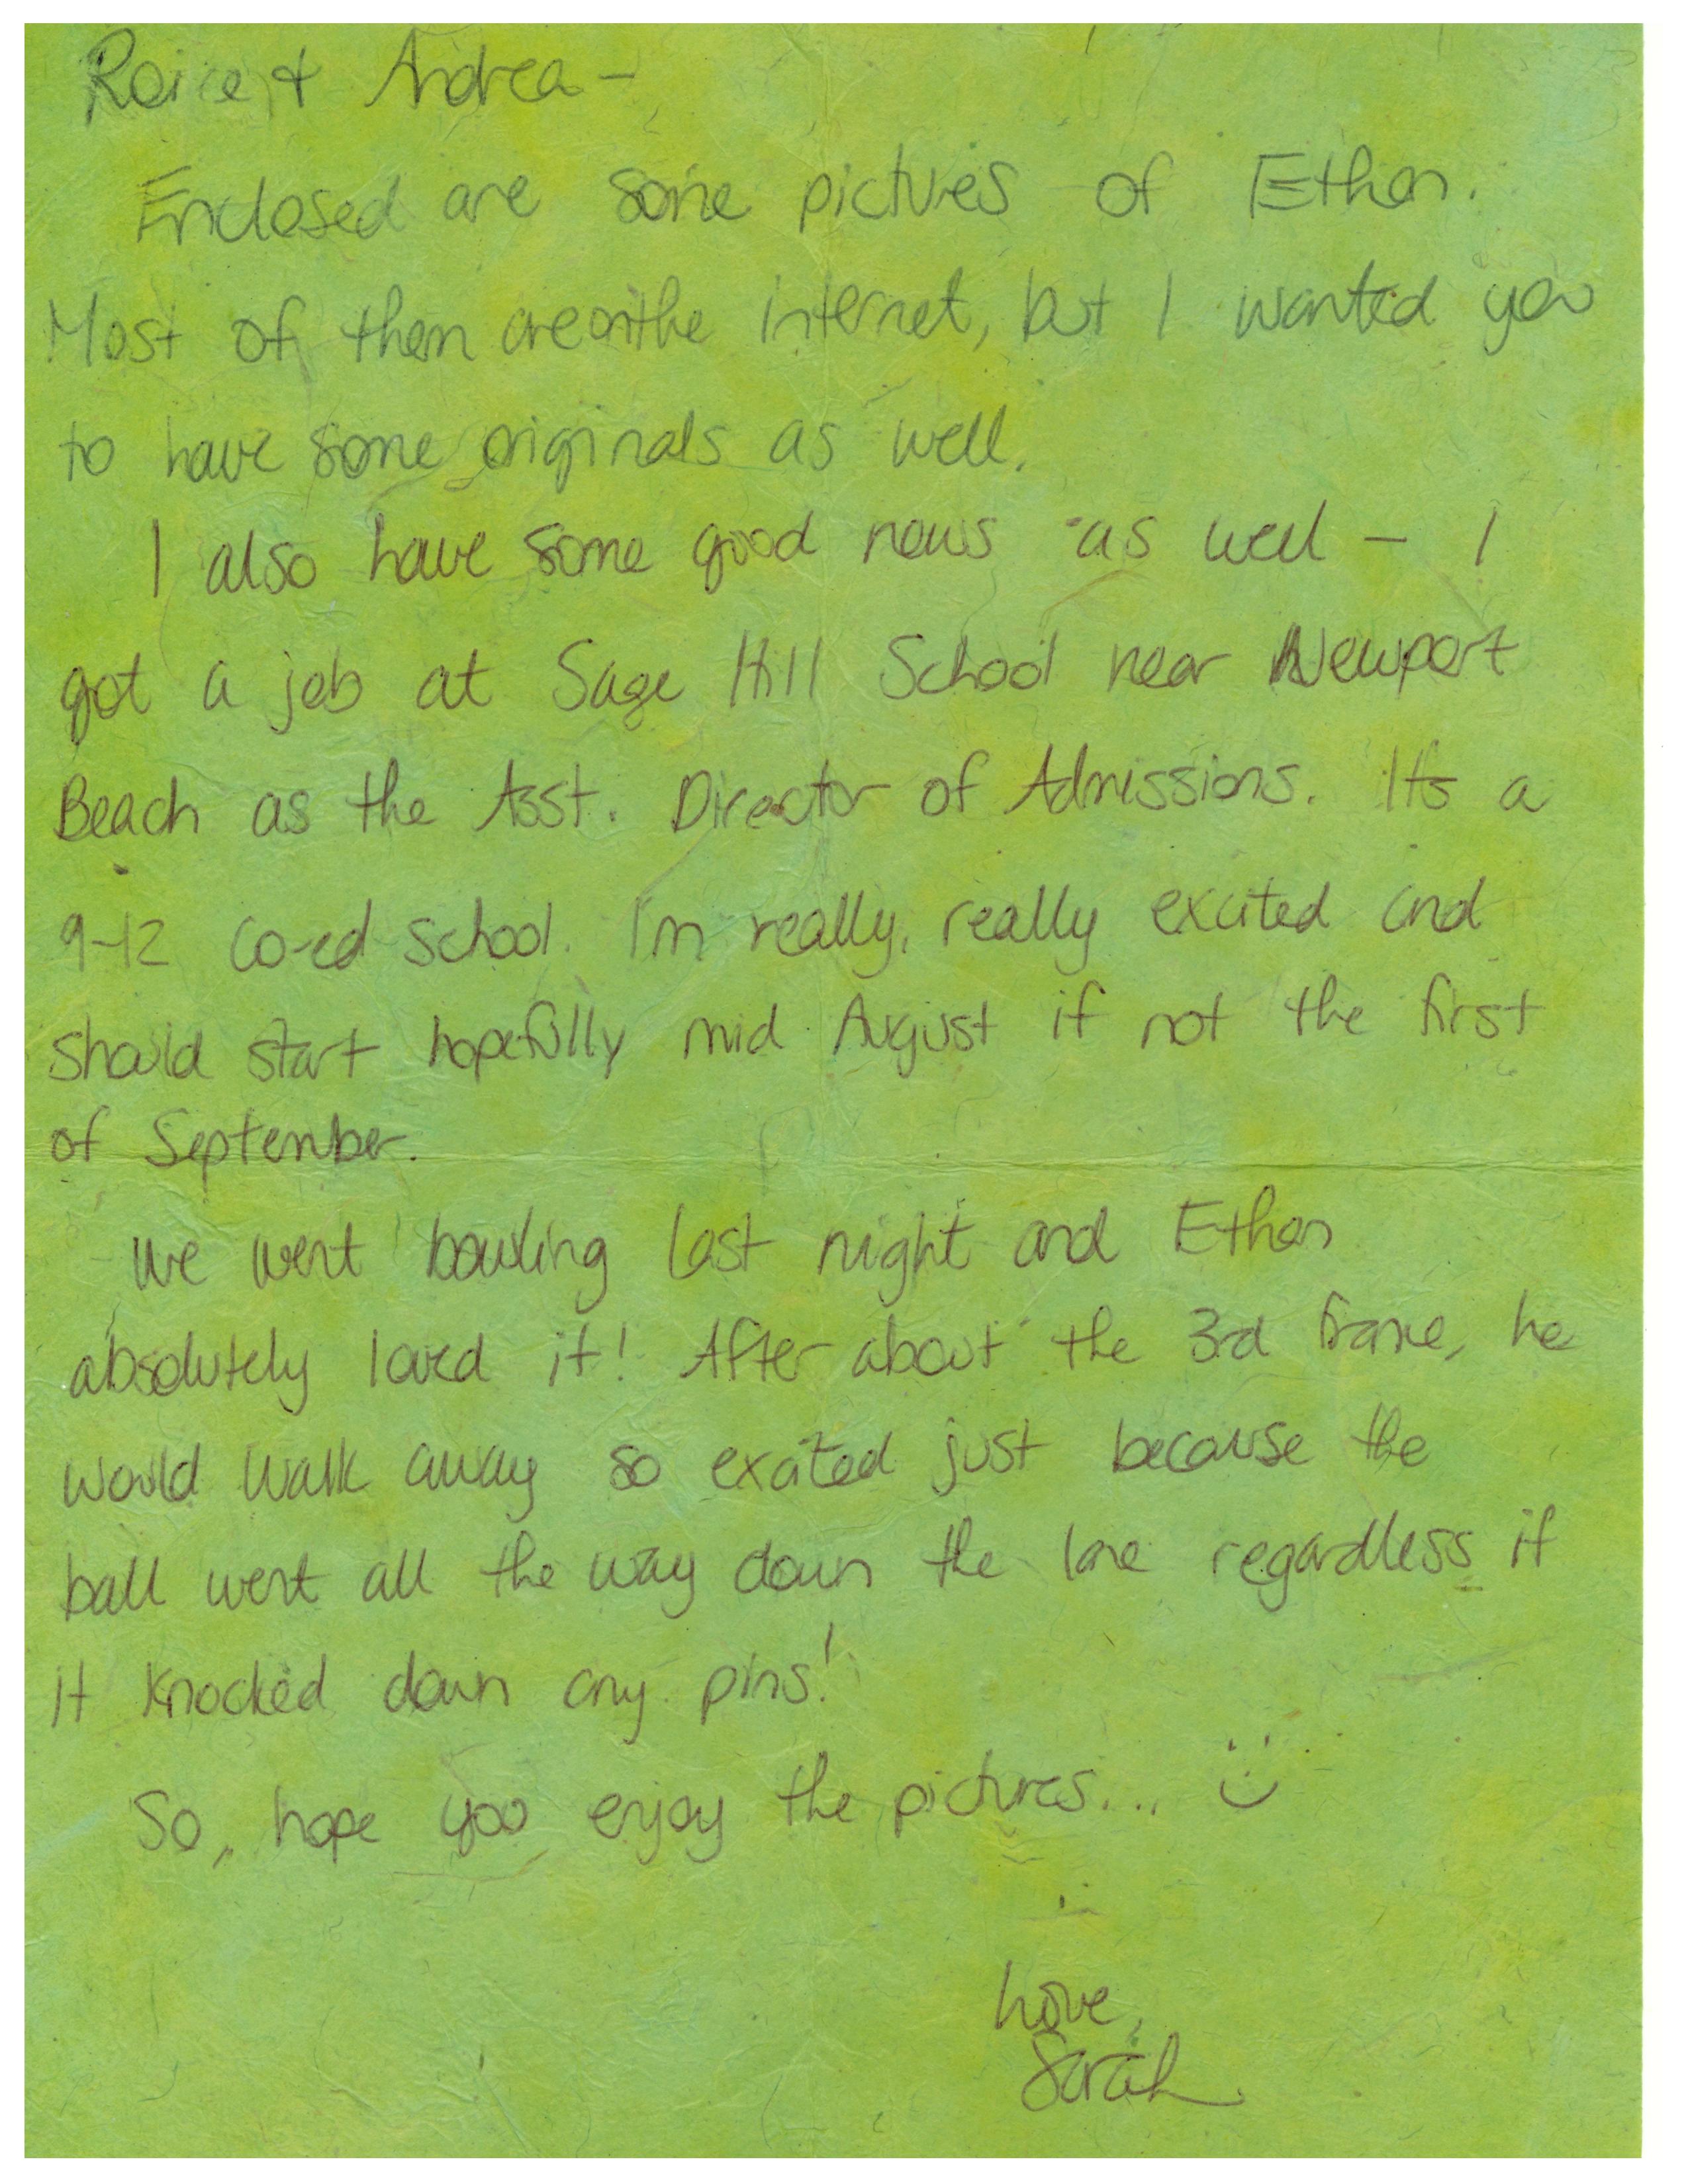 Roice & Andrea –
Enclosed are some pictures of Ethan.
Most of them are on the internet, but I wanted you
to have some originals as well.
I also have some good news as well – I
got a job at Sage Hill School near Newport
Beach as the Asst. Director of Admissions. It's a
9-12 co-ed school. I'm really, really excited and
should start hopefully mid August if not the first
of September.
We went bowling last night and Ethan
absolutely loved it! After about the 3rd frame, he
would walk away so excited just because the
ball went all the way down the lane regardless if
it knocked down any pins!
So, hope you enjoy the pictures... :)
Love,
Sarah